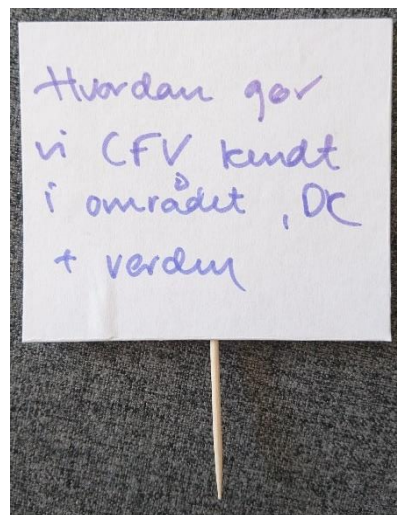 Hvordan gør
vi CFV kendt
i området, DK
+ verden